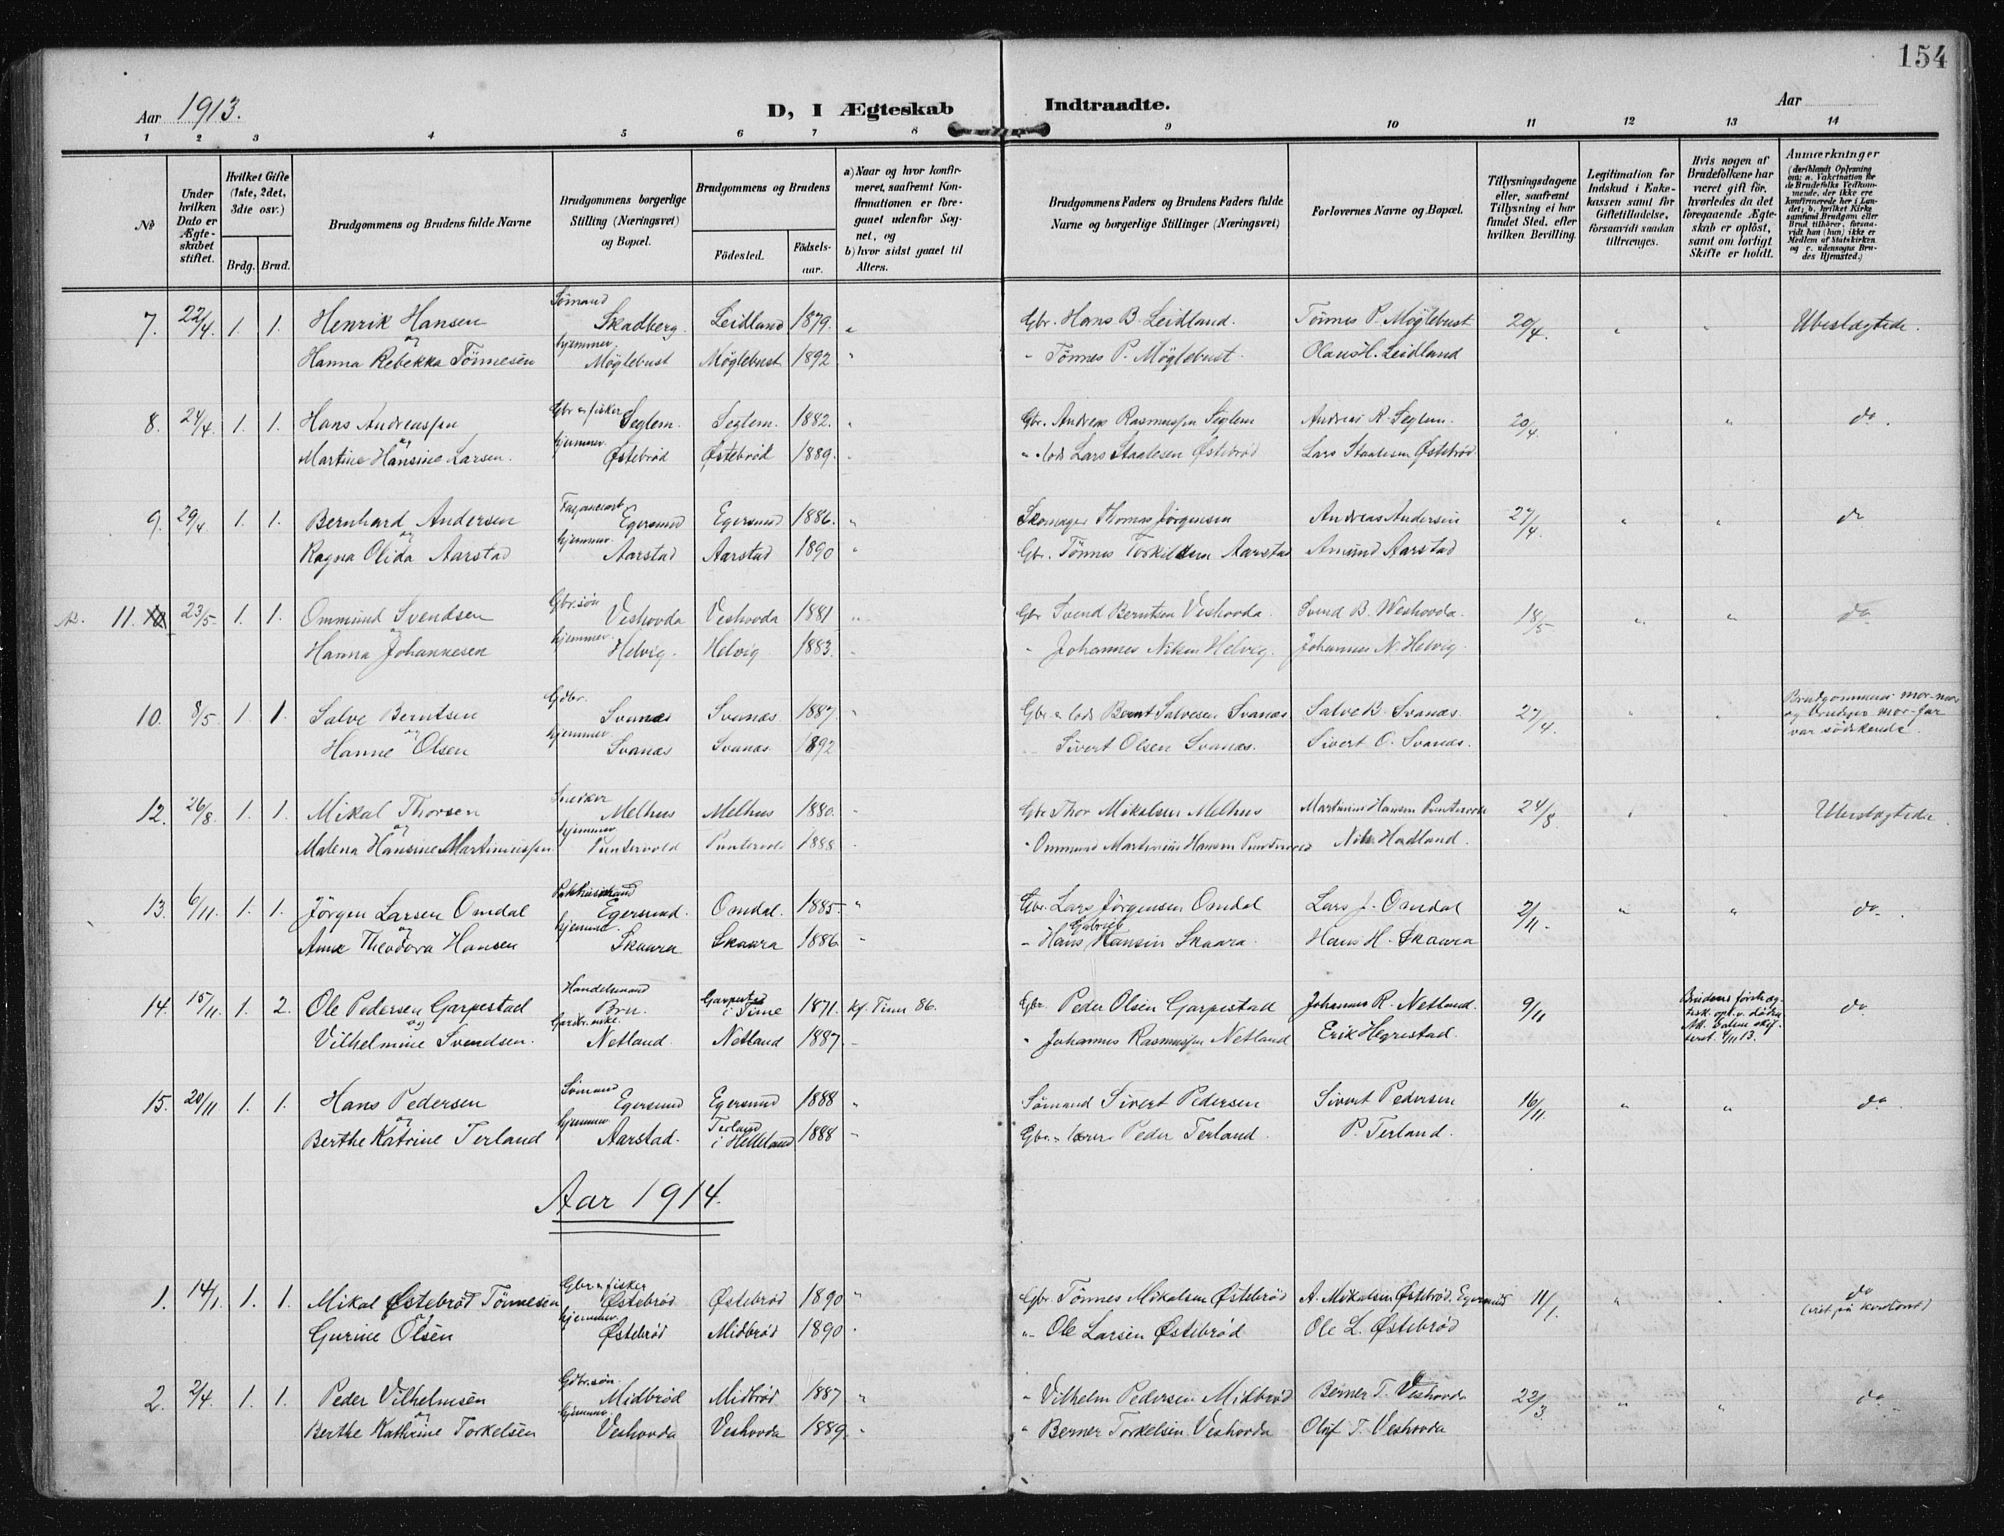 154
Aar 1913.
D, I Ægteskab Indtraadte.
Aar
1 2 3 4 5 6 7 8 9 10 11 12 13 14
No
Under hvilken Dato er Ægteskabet stiftet.
Hvilket Gifte (1ste, 2det, 3die osv.)
Brdg. Brud.
Brudgommens og Brudens fulde Navne
Brudgommens borgerlige Stilling (Næringsvei) og Bopæl.
Brudgommens og Brudens
Födested. Födselsaar.
a) Naar og hvor konfirmeret, saafremt Konfirmationen er foregaaet udenfor Sognet, og
b) hvor sidst gaaet til Alters.
Brudgommens Faders og Brudens Faders fulde Navne og borgerlige Stillinger (Næringsvei)
Forlovernes Navne og Bopæl.
Tillysningsdagene eller, saafremt Tillysning ei har fundet Sted, efter hvilken Bevilling.
Legitimation for Indskud i Enkekassen samt for Giftetilladelse, forsaavidt saadan tiltrænges.
Hvis nogen af Brudefolkene har været gift för, hvorledes da det foregaaende Ægteskab er oplöst, samt om lovligt Skifte er holdt.
Anmærkninger
7. 22/4 1. 1. Henrik Hansen Sømand Skadberg. Leidland 1879. " Gbr. Hans B. Leidland. Tønnes P. Møglebust 20/4. " " Ubeslægtede.
og
Hanna Rebekka Tönnesen hjemmev. Møglebust Møglebust 1892 " " Tønnes P. Møglebust. Olaus H. Leidland
8. 24/4 1. 1. Hans Andreassen Gbr. & fisker Seglem. Seglem. 1882. Gbr. Andreas Rasmussen Seglem Andreas R. Seglem 20/4. " do
og
Martine Hansine Larsen. hjemmev. Østebrød Østebrød 1889. " lods Lars Staalesen Østebrød Lars Staalesen Østebrød
9. 29/4 1. 1. Bernhard Andersen Egersund Egersund 1886. " Skomager Thomas Jørgensen Andreas Andersen 27/4. " " do
og
Ragna Olida Aarstad hjemmev. Aarstad Aarstad 1890 " Gbr. Tønnes Torkildsen Aarstad Amund Aarstad
11. 10 23/5 1. 1. Ommund Svendsen Gbr.søn Veshovda Veshovda 1881 " Gbr Svend Berntsen Veshovda. Svend B. Weshovda. 18/5 " " do
og
Hanna Johannesen hjemmev. Helvig. Helvig 1883. " Johannes Nilsen Helvig. Johannes N. Helvig.
10. 8/5 1. 1. Salve Berntsen Gdbr. Svanæs Svanæs 1887. " Gbr. & lods Bernt Salvesen Svanæs Salve B. Svanæs. 27/4. " " Brudgommens mor-mor
og Brudens mor-far
var södskende.
og
Hanne Olsen hjemmev. Svanæs Svanæs. 1892 " Sivert Olsen Svanæs. Sivert O. Svanæs.
12. 26/8 1. 1. Mikal Thorsen Snekker Melhus Melhus 1880. " Gbr Thor Mikalsen Melhus Martinius Hansen Puntervold 24/8 " " Ubeslægtede
og
Malena Hansine Martiniussen hjemmev. Puntervold Puntervold 1888 " Ommund Martinius Hansen Puntervold Nils Hadland.
13. 6/11. 1. 1. Jörgen Larsen Omdal Pakhusmand Egersund. Omdal. 1885. " Gbr. Lars Jørgensen Omdal Lars J. Omdal 2/11. " " do
og
Anne Theodora Hansen hjemmev. Skaara Skaara 1886 " Hans Gabriel Hansen Skaara. Hans H. Skaara
14. 15/11. 1. 2. Ole Pedersen Garpestad Handelsmand Bru. Garpestad i Time 1871. Kf. Time 86. Gbr Peder Olsen Garpestad Johannes R. Netland. 9/11 do
og
Vilhelmine Svendsen. Netland Netland 1887. " Johannes Rasmussen Netland Erik Hegrestad.
15. 20/11 1. 1. Hans Pedersen Sømand Egersund Egersund 1888 " Sømand Sivert Pedersen Sivert Pedersen 16/11. " " do
og
Berthe Katrine Terland hjemmev. Aarstad. Terland i Helleland 1888 " Gbr. & lærer Peder Terland. P. Terland.
Aar 1914.
1. 14/1. 1. 1. Mikal Østebrød Tönnesen Gbr & fisker Østebrød Østebrød 1890 " Gbr Tønnes Mikalsen Østebrød A. Mikalsen Østebrød. Egersund 11/1. " " do
og
Gurine Olsen hjemmev. Østebrød Midbrød 1890. " Ole Larsen Østebrød Ole L. Østebrød
2. 2/4. 1. 1. Peder Vilhelmsen Gdbr.søn Midbrød Midbrød 1887 " " Vilhelm Pedersen Midbrød Berner T. Veshovda 22/3 " " do
og
Berthe Kathrine Torkelsen hjemmev. Veshovda Veshovda 1889. " Berner Torkelsen Veshovda Olaf T. Veshovda